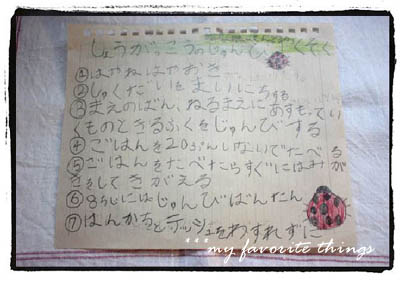 しょうがっこうのじゅんび、やくそく
①はやねはやおき
②しゅくだいをまいにちする
③まえのばん、ねるまえにあすもってい
くものときるふくをじゅんびする
④ごはんを20ぷんいないでたべる
⑤ごはんをたべたらすぐにはみが
きをして きがえる
⑥8じにはじゅんびばんたん
⑦はんかちとティッシュをわすれずに
my favorite things